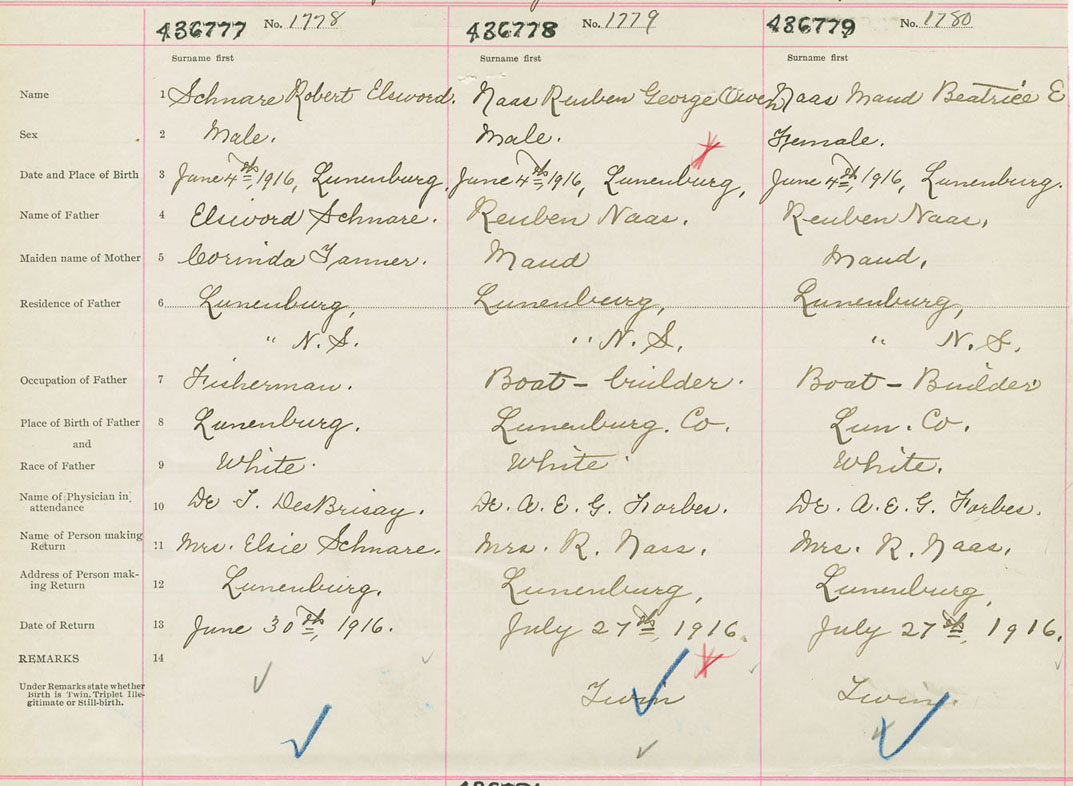 436777 No. 1778 436778 No. 1779 436779 No. 1780
Surname first Surname first Surname first
Name 1 Schnare Robert Elsword. Naas Reuben George Owen Naas Maud Beatrice E
Sex 2 Male. Male. Female.
Date and Place of Birth 3 June 4th, 1916, Lunenburg. June 4th, 1916, Lunenburg, June 4th, 1916, Lunenburg.
Name of Father 4 Elsword Schnare. Reuben Naas. Reuben Naas,
Maiden name of Mother 5 Corinda Tanner. Maud Maud,
Residence of Father 6 Lunenburg, Lunenburg, Lunenburg,
" N.S. " N.S. " N.S.
Occupation of Father 7 Fisherman. Boat-builder. Boat-Builder
Place of Birth of Father 8 Lunenburg. Lunenburg. Co. Lun. Co.
and
Race of Father 9 White. White. White.
Name of Physician in
attendance 10 Dr T. DesBrisay. Dr. A. E. G. Forbes. Dr. A. E. G. Forbes.
Name of Person making
Return 11 Mrs. Elsie Schnare. Mrs. R. Nass. Mrs. R. Naas.
Address of Person mak-
ing Return 12 Lunenburg. Lunenburg, Lunenburg,
Date of Return 13 June 30th, 1916. July 27th, 1916. July 27th, 1916.
REMARKS 14
Under Remarks state whether
Birth is Twin, Triplet Ille-
gitimate or Still-birth. Twin Twin.